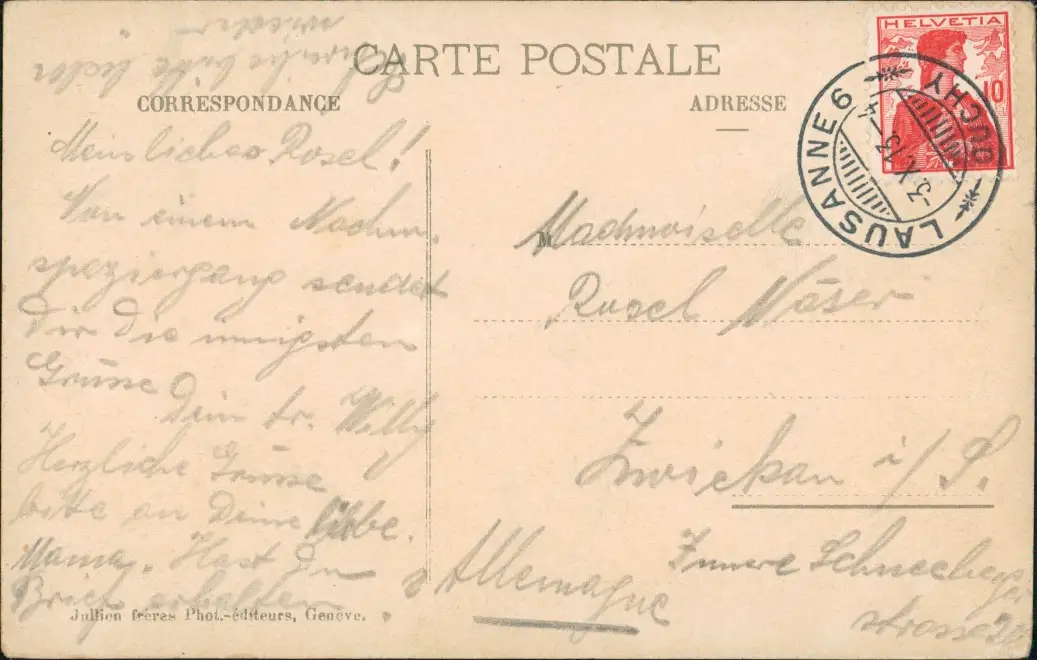 CARTE POSTALE
CORRESPONDANCE
ADRESSE
HELVETIA
10
LAUSANNE 6
OUCHY
-3.X.13-4
Mein liebes Rosel!
Von einem Nachm.
spaziergang sendet
Dir die innigsten
Grüsse
Dein tr. Willy
Herzliche Grüsse
bitte an Deine liebe
Mama. Hast Du
Brief erhalten
Schreibe bitte
wieder
M
Madmoiselle
Rosel Näser
Zwickau i/S.
Innere Schneeberger
strasse
Allemagne
Jullien frères Phot.-éditeurs, Genève.